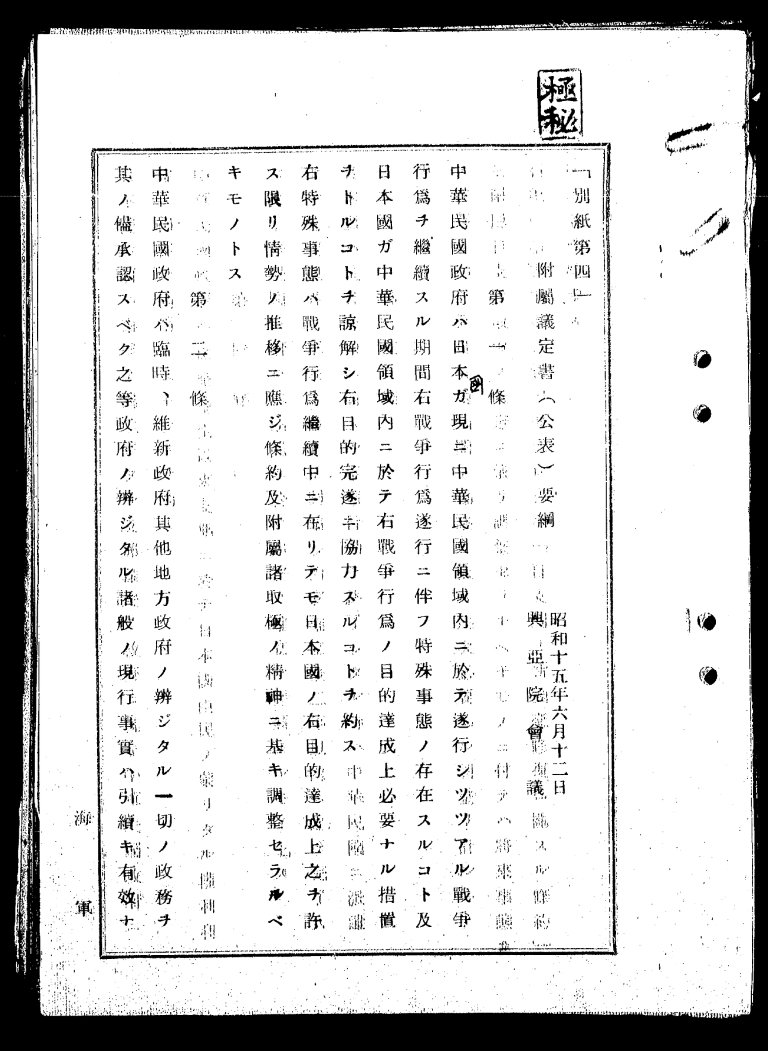 極秘
「別紙第四」
附屬議定書(公表)要綱
昭和十五年六月十二日
興亞院會議
第一條
中華民國政府ハ日本國ガ現ニ中華民國領域內ニ於テ遂行シツツアル戰爭
行爲ヲ繼續スル期間右戰爭行爲遂行ニ伴フ特殊事態ノ存在スルコト及
日本國ガ中華民國領域內ニ於テ右戰爭行爲ノ目的達成上必要ナル措置
ヲトルコトヲ諒解シ右目的完遂ニ協力スルコトヲ約ス
右特殊事態ハ戰爭行爲繼續中ニ在リテモ日本國ノ右目的達成上之ヲ許
ス限リ情勢ノ推移ニ應ジ條約及附屬諸取極ノ精神ニ基キ調整セラルベ
キモノトス
第二條
中華民國政府ハ臨時、維新政府其他地方政府ノ辨ジタル一切ノ政務ヲ
其ノ儘承認スベク之等政府ノ辨ジタル諸般ノ現行事實ハ引續キ有效ナ
海軍